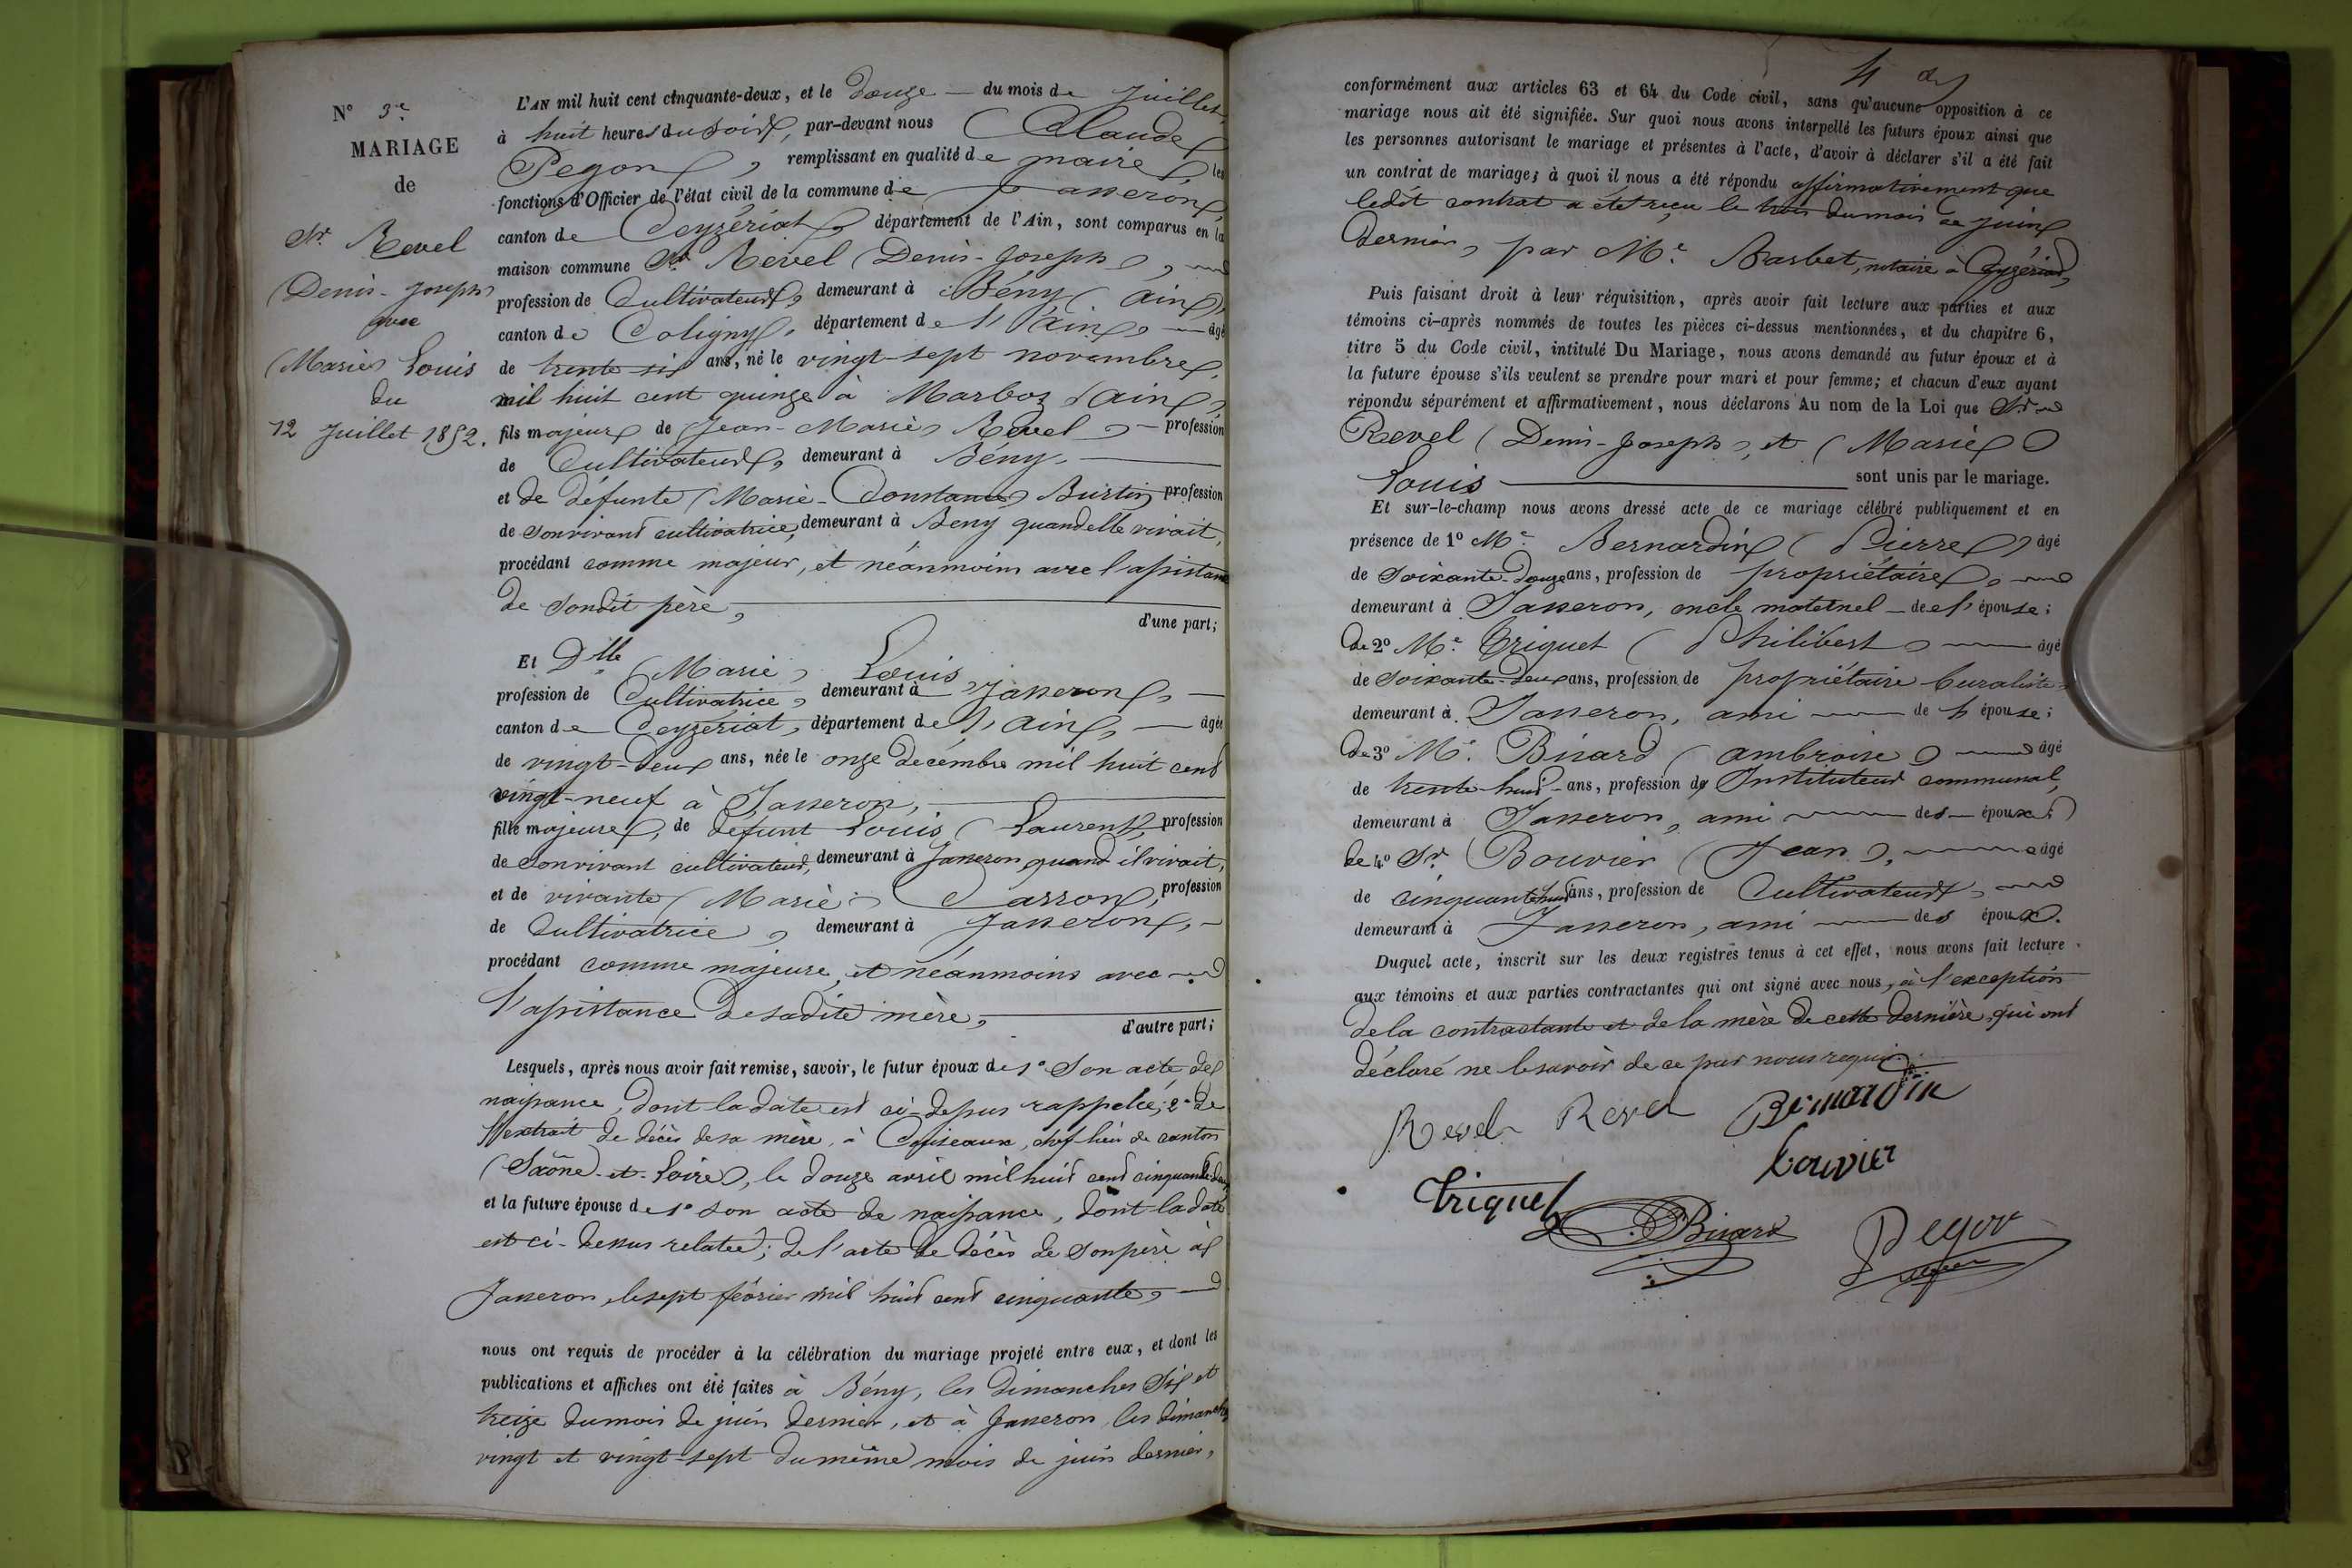 N° 3e
MARIAGE
de
Sr. Revel
Denis-Joseph
avec
Marie Louis
du
12 Juillet 1852.
L'AN mil huit cent cinquante-deux, et le douze du mois de juillet,
à huit heures du soir, par-devant nous Claude
Pegon, remplissant en qualité de maire les
fonctions d'Officier de l'état civil de la commune de Jasseron,
canton de Ceyzériat, département de l'Ain, sont comparus en la
maison commune Sr. Revel Denis-Joseph,
profession de Cultivateur, demeurant à Bény (Ain),
canton de Coligny, département de l'Ain, âgé
de trente six ans, né le vingt-sept novembre
mil huit cent quinze à Marboz (Ain),
fils majeur de Jean-Marie Revel, profession
de Cultivateur, demeurant à Bény,
et de défunte Marie-Constance Burtin, profession
de son vivant cultivatrice, demeurant à Beny quand elle vivait,
procédant comme majeur, et néanmoins avec l'assistance
de sondit père,
d'une part;
Et Dlle Marie Louis,
profession de Cultivatrice, demeurant à Jasseron,
canton de Ceyzériat, département de l'Ain, âgée
de vingt-deux ans, née le onze décembre mil huit cent
vingt-neuf à Jasseron,
fille majeure, de défunt Louis Laurent, profession
de son vivant cultivateur, demeurant à Jasseron quand il vivait,
et de vivante Marie Carron, profession
de Cultivatrice, demeurant à Jasseron,
procédant comme majeure, et néanmoins avec
l'assistance de sadite mère,
d'autre part;
Lesquels, après nous avoir fait remise, savoir, le futur époux de 1° Son acte de
naissance, dont la date est ci-dessus rappelée; 2° de
l'extrait de décès de sa mère, à Cuiseaux, chef lieu de canton
(Saône-et-Loire), le douze avril mil huit cent cinquante deux
et la future épouse de 1° son acte de naissance, dont la date
est ci-dessus relatée; de l'acte de décès de son père à
Jasseron, le sept février mil huit cent cinquante,
nous ont requis de procéder à la célébration du mariage projeté entre eux, et dont les
publications et affiches ont été faites à Bény, les dimanches Six et
treize du mois de juin dernier, et à Jasseron, les dimanches
vingt et vingt-sept du même mois de juin dernier,
4
conformément aux articles 63 et 64 du Code civil, sans qu'aucune opposition à ce
mariage nous ait été signifiée. Sur quoi nous avons interpellé les futurs époux ainsi que
les personnes autorisant le mariage et présentes à l'acte, d'avoir à déclarer s'il a été fait
un contrat de mariage; à quoi il nous a été répondu affirmativement que
ledit contrat a été reçu le trois du mois de juin
dernier, par Me. Barbet, notaire à Ceyzériat,
Puis faisant droit à leur réquisition, après avoir fait lecture aux parties et aux
témoins ci-après nommés de toutes les pièces ci-dessus mentionnées, et du chapitre 6,
titre 5 du Code civil, intitulé Du Mariage, nous avons demandé au futur époux et à
la future épouse s'ils veulent se prendre pour mari et pour femme; et chacun d'eux ayant
répondu séparément et affirmativement, nous déclarons Au nom de la Loi que Sr.
Revel (Denis-Joseph), et Marie
Louis sont unis par le mariage.
Et sur-le-champ nous avons dressé acte de ce mariage célébré publiquement et en
présence de 1° Me. Bernardin (Pierre) âgé
de Soixante-douze ans, profession de propriétaire,
demeurant à Jasseron, oncle maternel de l'épouse;
de 2° Me. Triquet (Philibert) âgé
de Soixante-deux ans, profession de propriétaire buraliste,
demeurant à Jasseron, ami de l'épouse;
de 3° Me. Bizard (Ambroise) âgé
de trente-huit ans, profession de Instituteur communal,
demeurant à Jasseron, ami des époux;
de 4° Sr. Bouvier (Jean), âgé
de cinquante huit ans, profession de Cultivateur,
demeurant à Jasseron, ami des époux.
Duquel acte, inscrit sur les deux registres tenus à cet effet, nous avons fait lecture
aux témoins et aux parties contractantes qui ont signé avec nous, à l'exception
de la contractante et de la mère de cette dernière, qui ont
déclaré ne le savoir de ce par nous requis.
Revel Revel Bernardin
bouvier
triquet Bizard Pegon